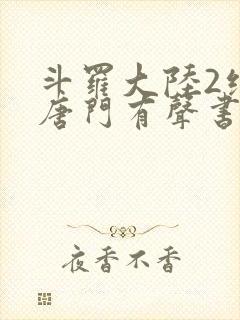 斗羅大陸2
唐門有聲書
夜香不香